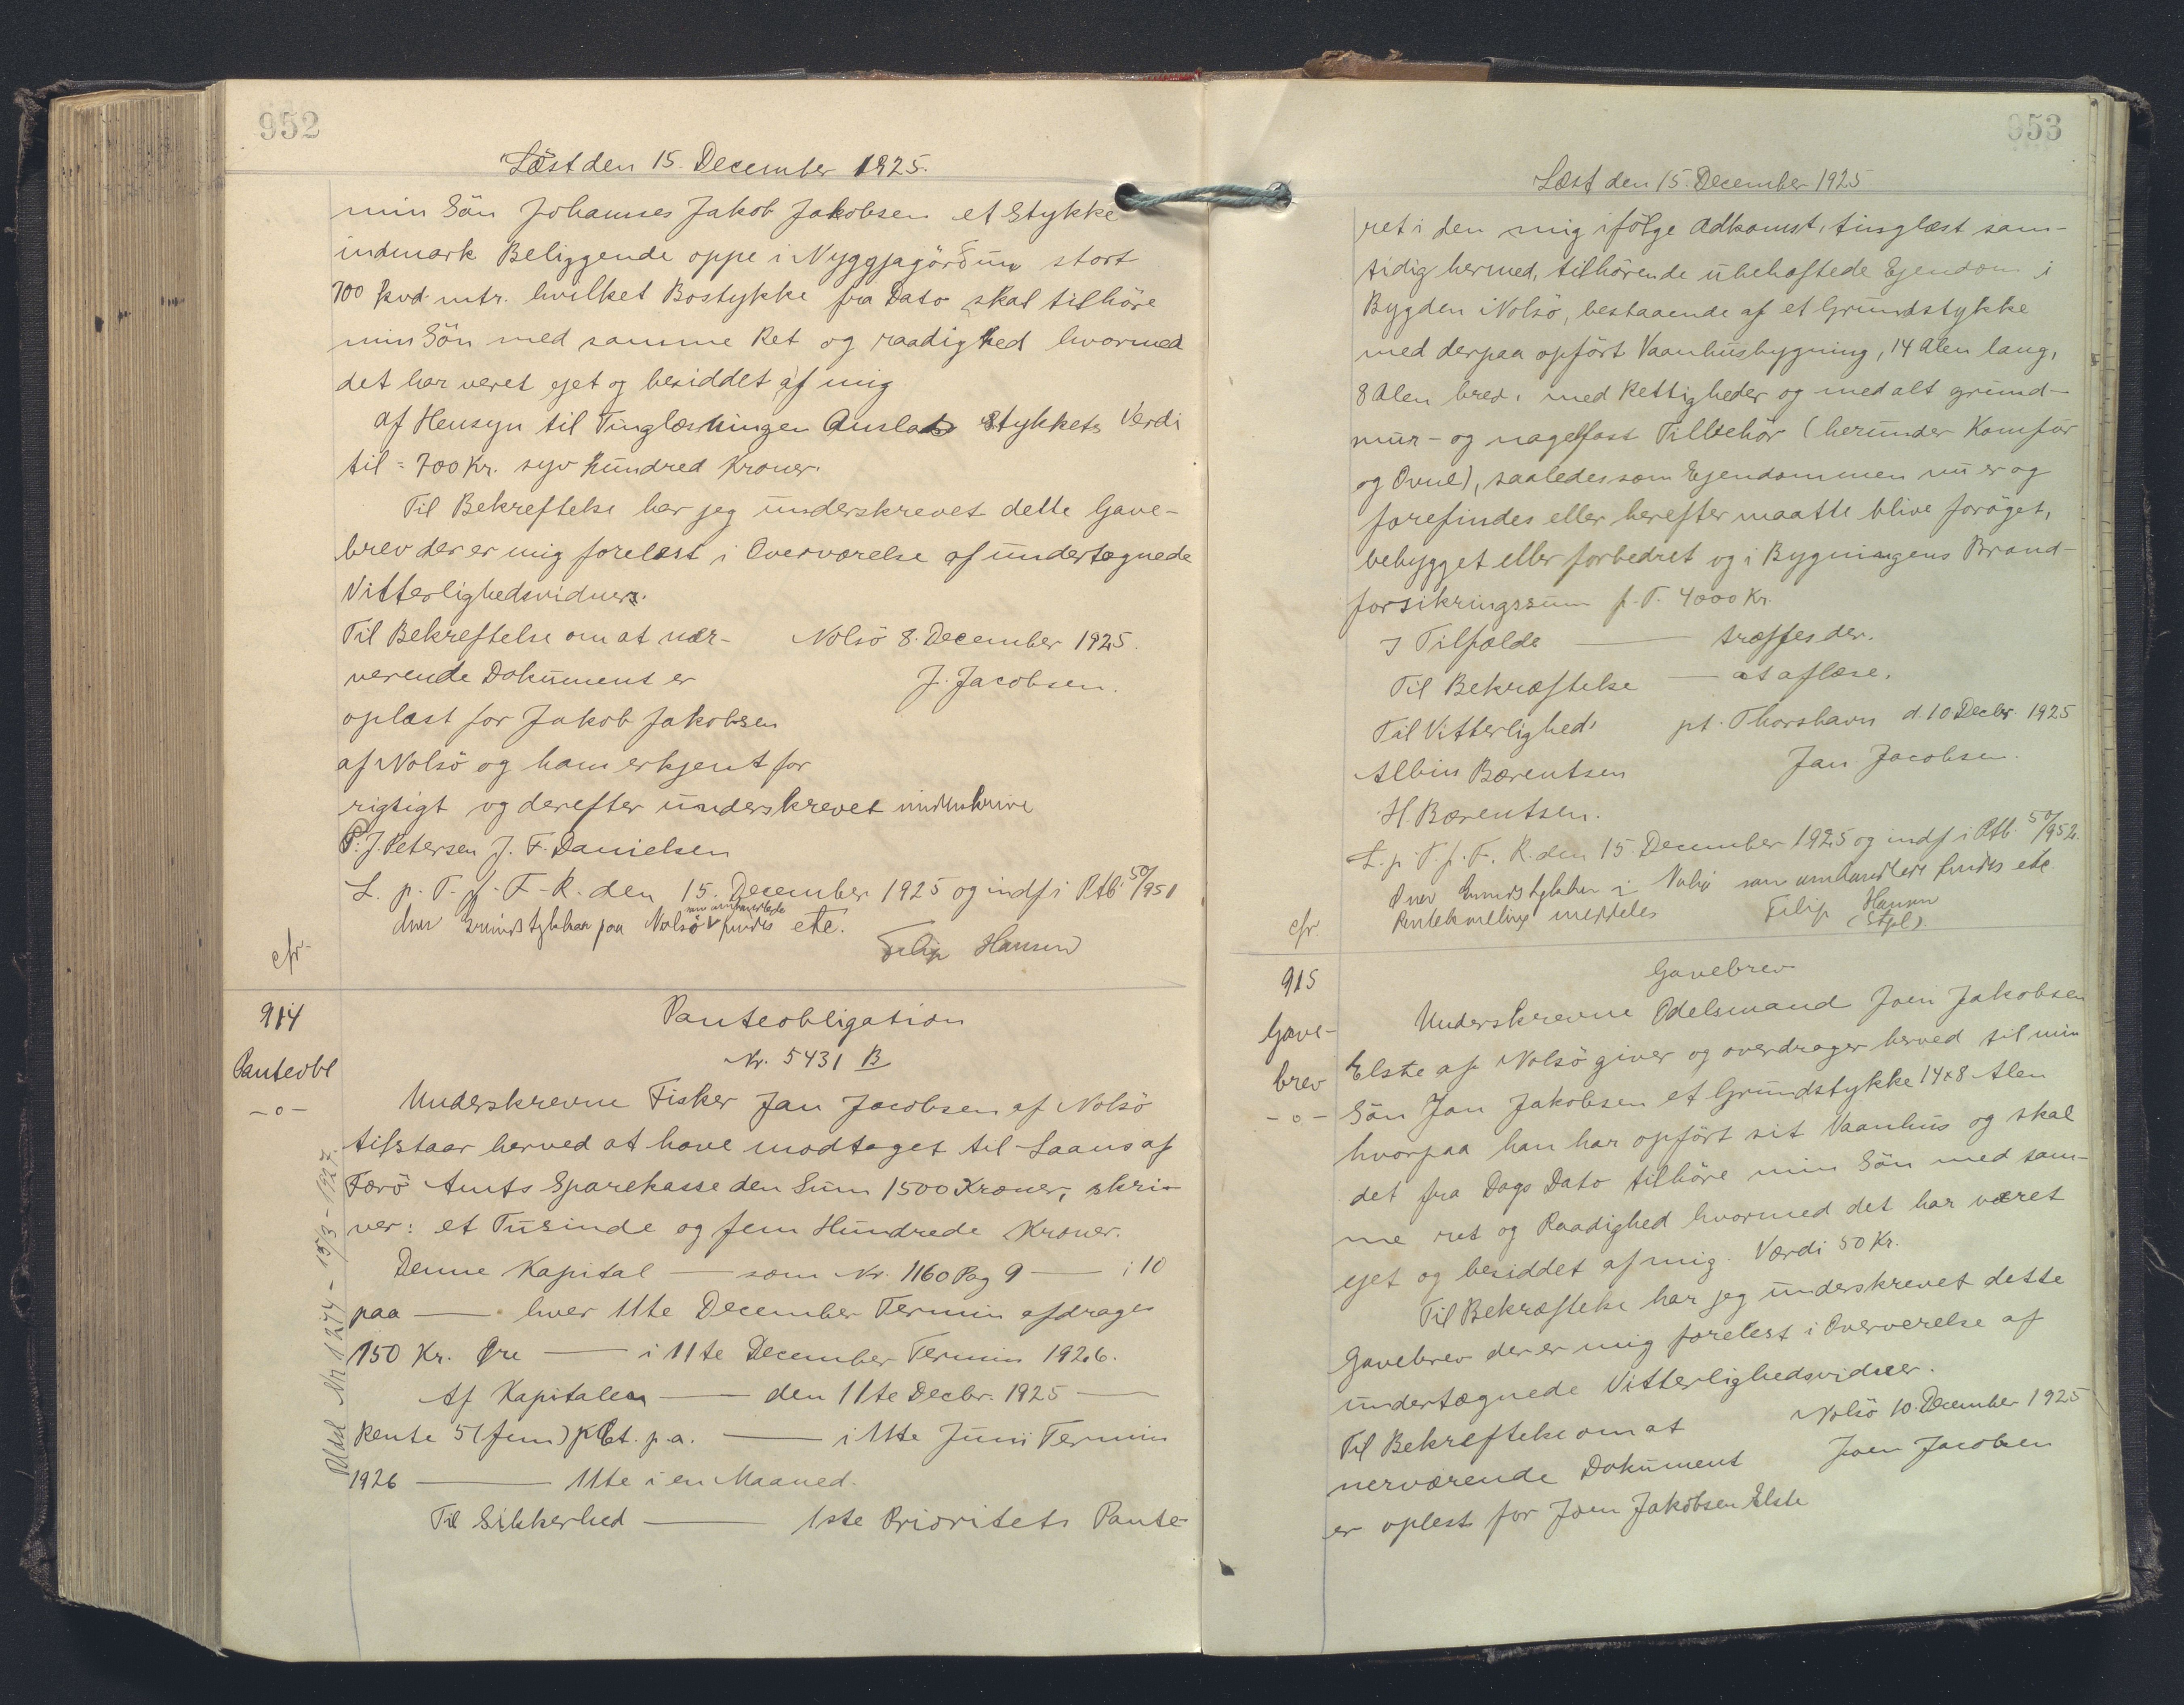 952
Læst den 15. December 1925.
min Sön Johannes Jakob Jakobsen et Stykke
indmark Beliggende oppe i Nyggjagörðum stort
700 kvd. mtr. hvilket Bostykke fra Dato skal tilhöre
min Sön med samme Ret og raadighed hvormed
det har veret ejet og besiddet af mig
af Hensyn til Tinglæsningen Anslaas Stykkets Verdi
til = 700 Kr. syv hundred Kroner.
Til Bekreftelse har jeg underskrevet dette Gave-
brev der er mig forelæst i Overværelse af undertegnede
Vitterlighedsvidner.
Til Bekreftelse om at nær- Nolsö 8. December 1925.
verende Dokument er J. Jacobsen.
oplæst for Jakob Jakobsen
af Nolsö og ham erkjent for
rigtigt og derefter underskrevet underskrive
P. J. Petersen J. F. Danielsen
L. p. T. f. F. R. den 15. December 1925 og indf i Ptb. 50/951
som omhandlede
Over Grundstykker paa Nolsö findes etc.
cfr. Filip Hansen
914 Panteobligation
Panteobl Nr. 5431 B
-o-
Underskrevne Fisker Jan Jacobsen af Nolsö
tilstaar herved at have modtaget til Laans af
Færö Amts Sparekasse den Sum 1500 Kroner, skri-
ver: et Tusinde og fem Hundrede Kroner.
Denne Kapital — som Nr. 1160 Pag 9 — i 10
paa — hver 11te December Termin afdrages
150 Kr. Øre — i 11te December Termin 1926.
Af Kapitalen — den 11te Decbr. 1925 —
Rente 5 (fem) pCt. p.a. — i 11te Juni Termin
1926 — 11te i en Maaned.
Til Sikkerhed — 1ste Prioritets Pante-
Nr 1274 - 15/3 - 1927.
953
Læst den 15. December 1925
ret i den mig ifölge Adkomst, tinglæst sam-
tidig hermed, tilhörende ubehæftede Ejendom i
Bygden i Nolsö, bestaaende af et Grundstykke
med derpaa opfört Vaanhusbygning, 14 Alen lang,
8 Alen bred, med Rettigheder og med alt grund-
mur- og nagelfast Tilbehör (herunder Komfur
og Ovne), saaledes som Ejendommen nu er og
forefindes eller herefter maatte blive foröget,
bebygget eller forbedret og i Bygningens Brand-
forsikringssum p. T. 4000 Kr.
I Tilfælde — træffes der.
Til Bekræftelse — at aflæse.
Til Vitterlighed: pt. Thorshavn d. 10 Decbr. 1925
Albin Bærentsen Jan Jacobsen.
H. Bærentsen.
L. p. T. f. F. R. den 15. December 1925 og indf i Ptb. 50/952.
Over Grundstykker i Nolsö som omhandlede findes etc.
meddeles Filip Hansen
cfr. (Stpl).
915 Gavebrev
Gave-
brev
-o-
Underskrevne Odelsmand Joen Jakobsen
Elste af Nolsö giver og overdrager herved til min
Sön Jan Jakobsen et Grundstykke 14x8 Alen
hvorpaa han har opfört sit Vaanhus og skal
det fra Dags Dato tilhöre min Sön med sam-
me ret og Raadighed hvormed det har været
ejet og besiddet af mig. Værdi 50 Kr.
Til Bekræftelse har jeg underskrevet dette
Gavebrev der er mig forelest i Oververelse af
undertægnede Vitterlighedsvidner.
Til Bekreftelse om at Nolsö 10. December 1925
nerværende Dokument Joen Jacobsen
er oplest for Joen Jakobsen Elste